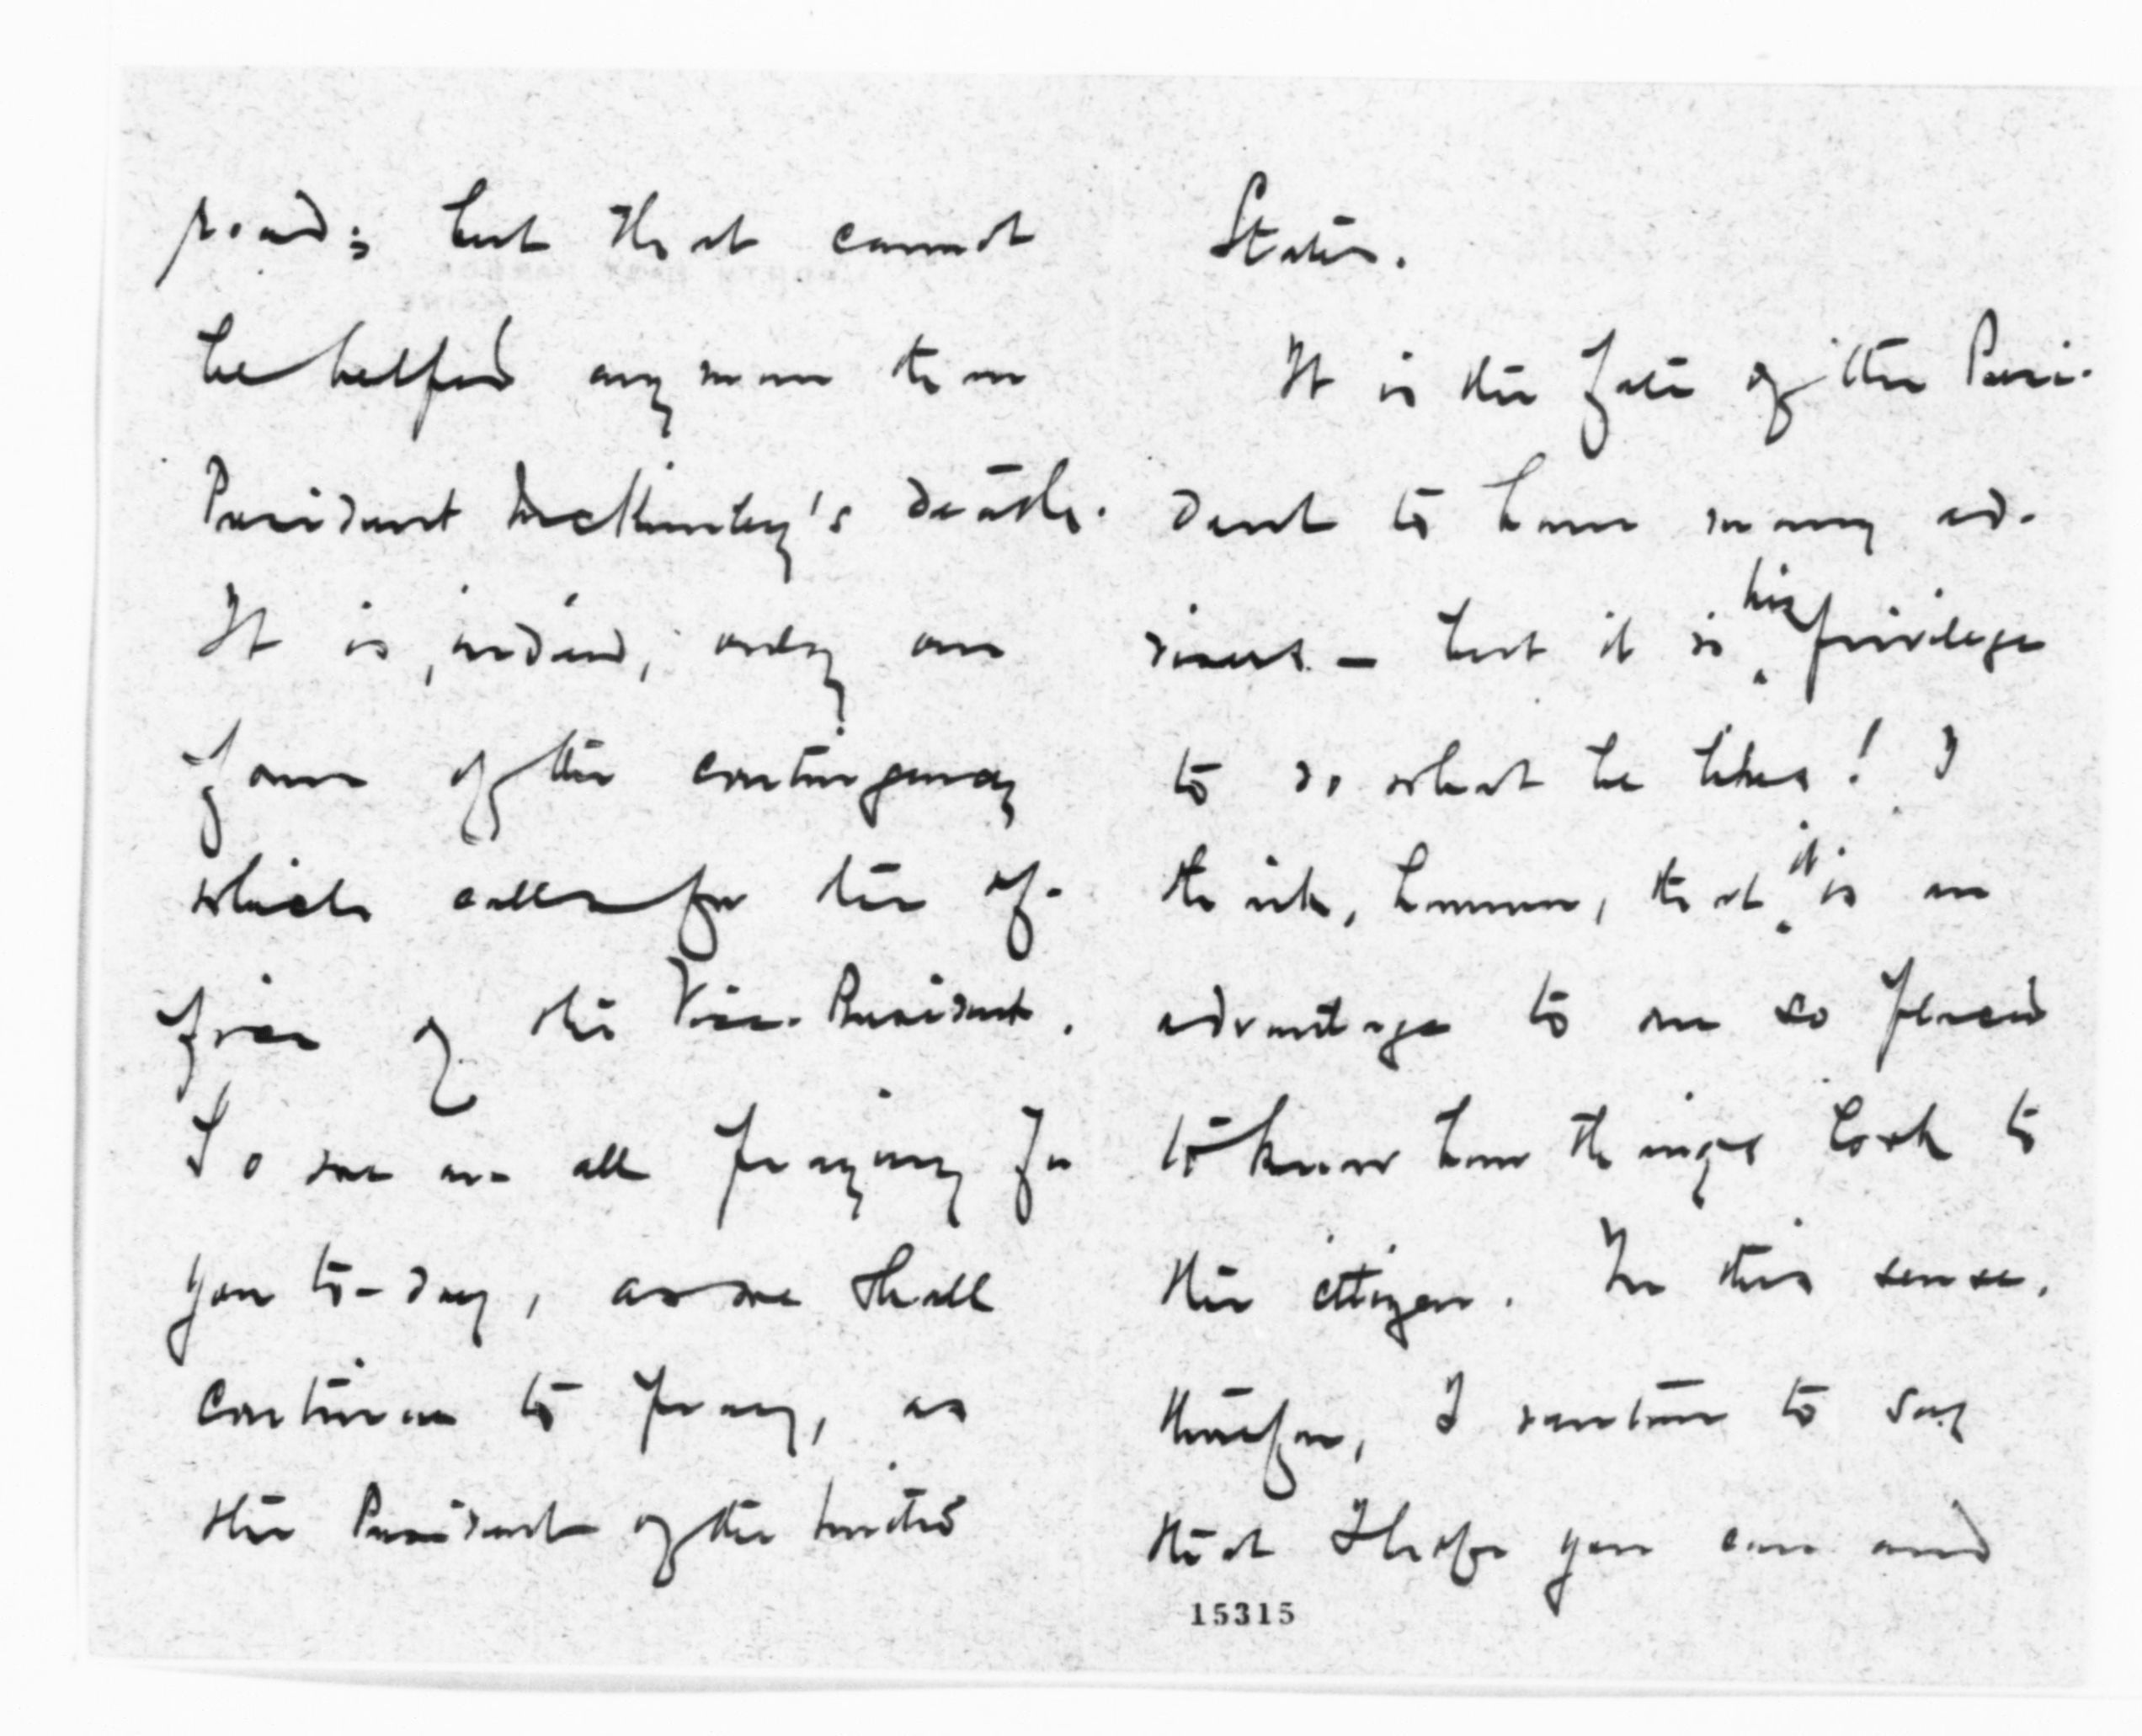 road; but that cannot
be helped any more than
President McKinley's death.
It is, indeed, only one
form of the contingency
which calls for the of-
fice of the Vice-President.
So we are all praying for
you to-day, as we shall
continue to pray, as
the President of the United
States.
It is the fate of the Presi-
dent to have many ad-
visers – but it is his privilege
to do what he likes! I
think, however, that it is an
advantage to one so placed
to know how things look to
the citizen. In this sense,
therefore, I venture to say
that I hope you can and
15315